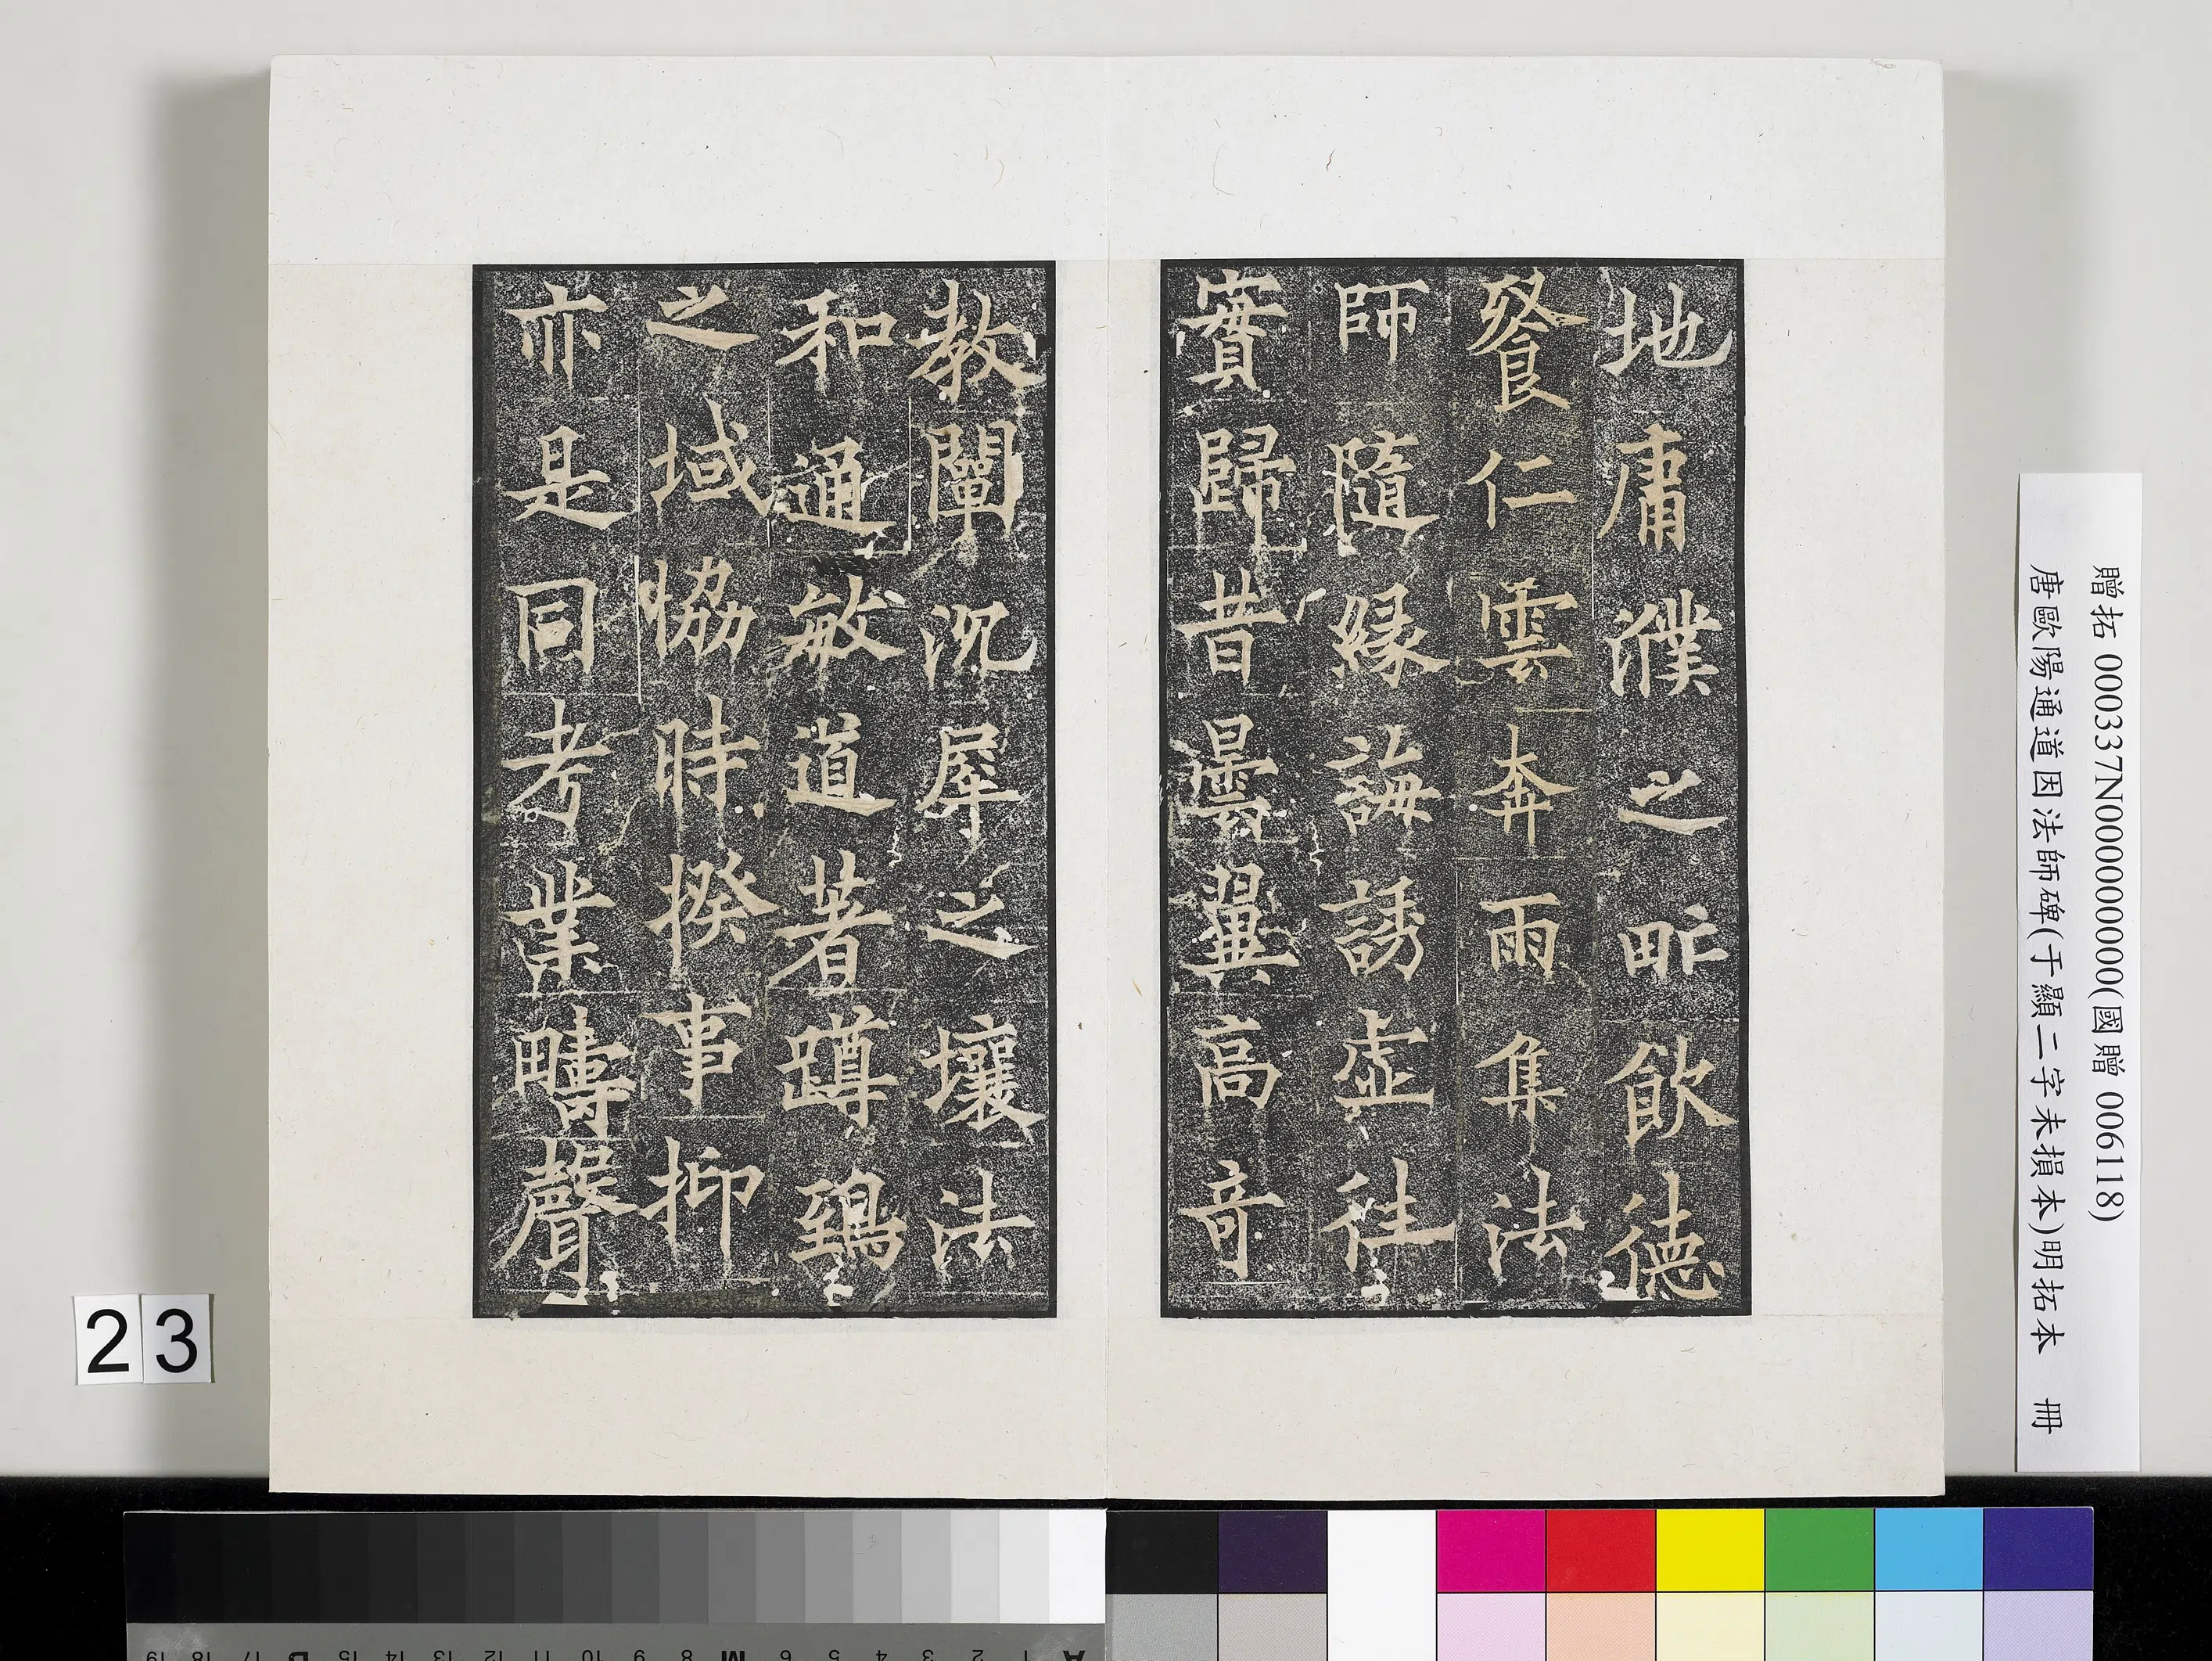 地庸濮之甿飲德
飡仁雲奔雨集法
師隨緣誨誘虛往
實歸昔曇翼高奇
教闡沉犀之壤法
和通敏道著蹲鵄
之域協時揆事抑
亦是同考業疇聲
贈拓 000337N000000000(國贈 006118)
唐歐陽通道因法師碑(于顯二字未損本)明拓本 冊
23
A 1 2 3 4 5 6 M 8 9 10 11 12 13 14 15 B 17 18 19